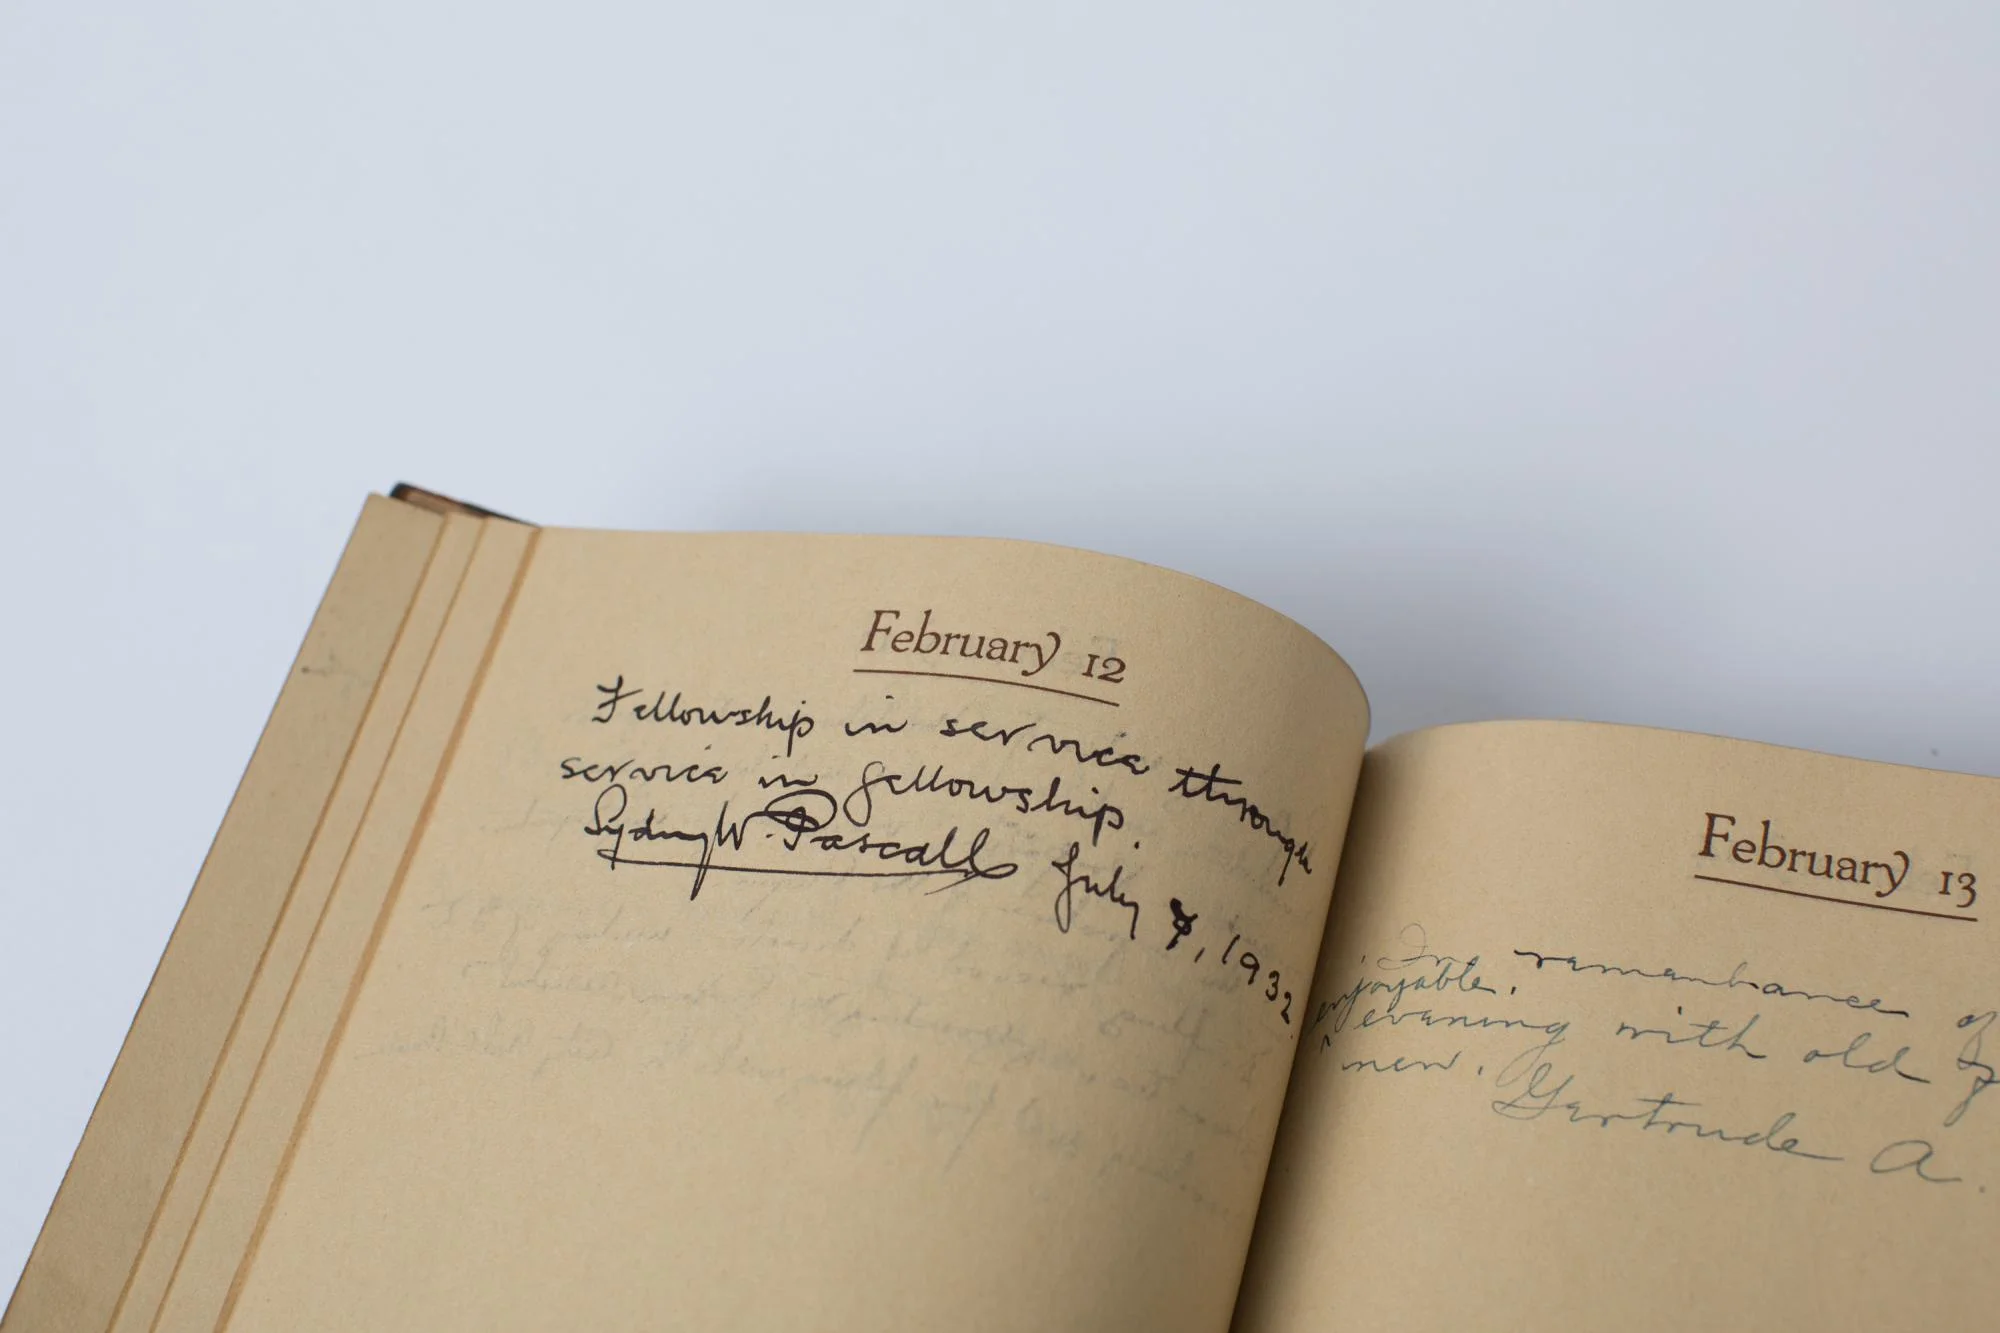 February 12
Fellowship in service through
service in fellowship.
Sydney W. Pascall July 4, 1932.
February 13
In remembrance of
enjoyable.
evening with old
men. Gertrude A.